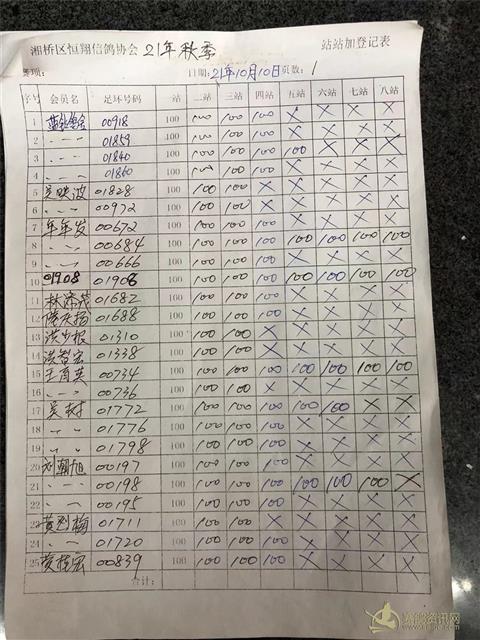 湘桥区恒翔信鸽协会 21年 秋季 站站加登记表
项: 日期: 21年10月10日 页数: 1
序号 会员名 足环号码 一站 二站 三站 四站 五站 六站 七站 八站
1 00918 100 100 100 100 X X X X
2 〃 01859 100 100 100 100 X X X X
3 〃 01840 100 100 100 100 100 X X X
4 〃 01860 100 100 100 100 X X X X
5 吴映波 01828 100 100 100 X X X X X
6 〃 00972 100 100 100 X X X X X
7 年年发 00672 100 100 100 100 X X X X
8 〃 00684 100 100 100 100 100 100 100 100
9 〃 00666 100 100 100 100 X X X X
10 01908 01908 100 100 100 100 100 100 100 100
11 林 01682 100 100 100 100 X X X X
12 陈 01688 100 100 100 100 X X X X
13 洪少报 01310 100 100 100 X X X X X
14 洪智宏 01338 100 100 100 X X X X X
15 王育英 00734 100 100 100 100 100 100 100 100
16 〃 00736 100 100 100 X X X X X
17 吴 01772 100 100 100 100 100 100 X X
18 〃 01776 100 100 100 100 X X X X
19 〃 01798 100 100 100 100 X X X X
20 刘朝旭 00197 100 100 100 100 X X X X
21 〃 00198 100 100 100 100 100 100 100 X
22 〃 00195 100 100 100 100 X X X X
23 黄烈梅 01711 100 100 100 X X X X X
24 〃 01720 100 100 100 100 X X X X
25 黄 宏 00839 100 100 100 100 X X X X
合计: